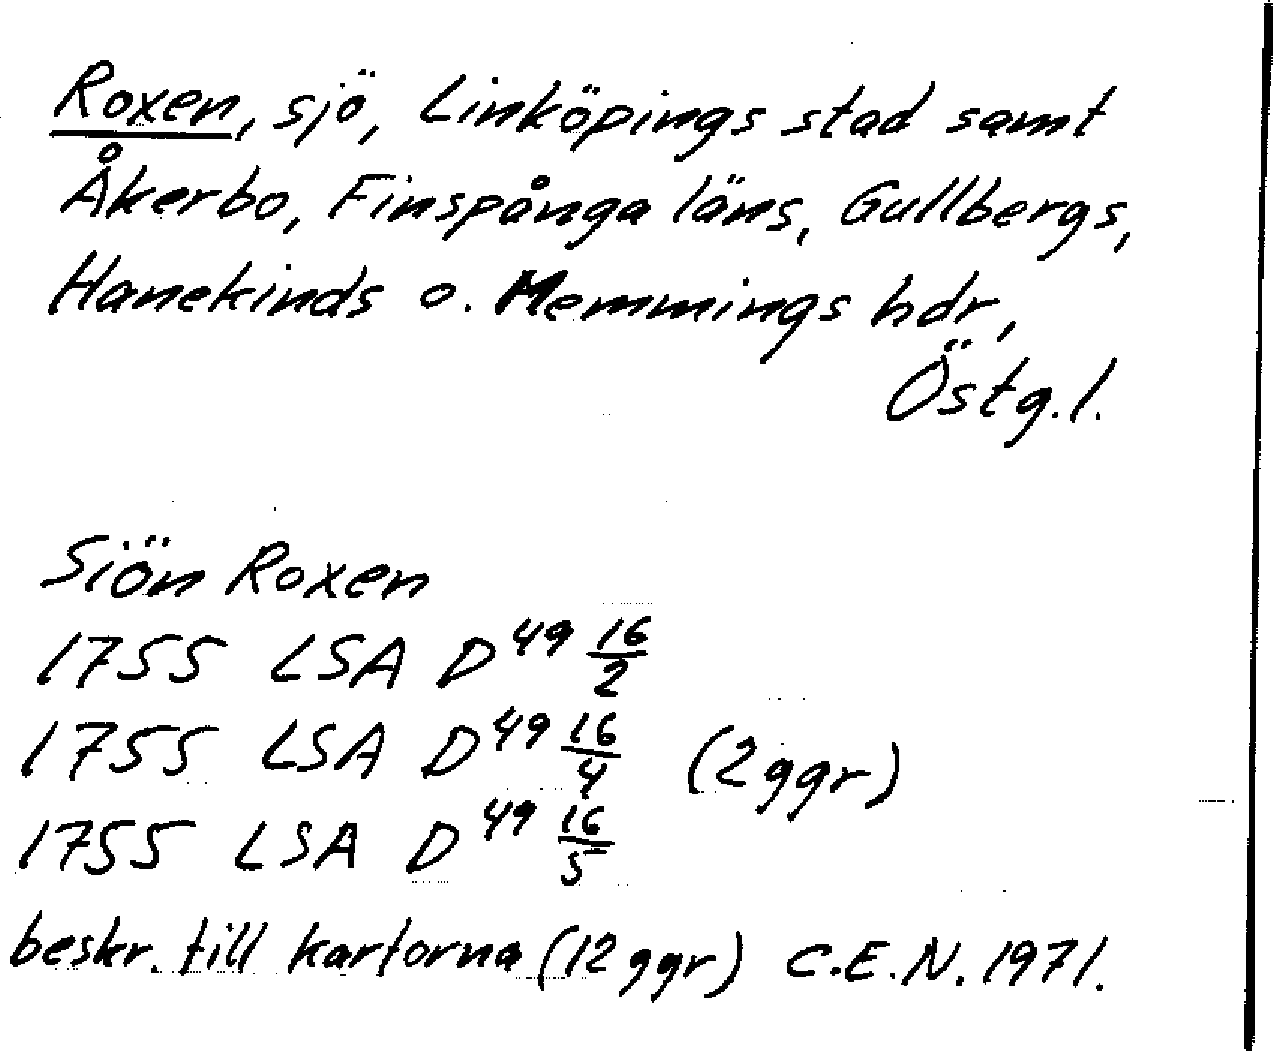 Roxen, sjö, Linköpings stad samt
Åkerbo, Finspånga läns, Gullbergs,
Hanekinds o. Memmings hdr,
Östg. l.
Siön Roxen
1755 LSA D 49 16/2
1755 LSA D 49 16/4 (2 ggr)
1755 LSA D 49 16/5
beskr. till kartorna (12 ggr) C.E.N. 1971.